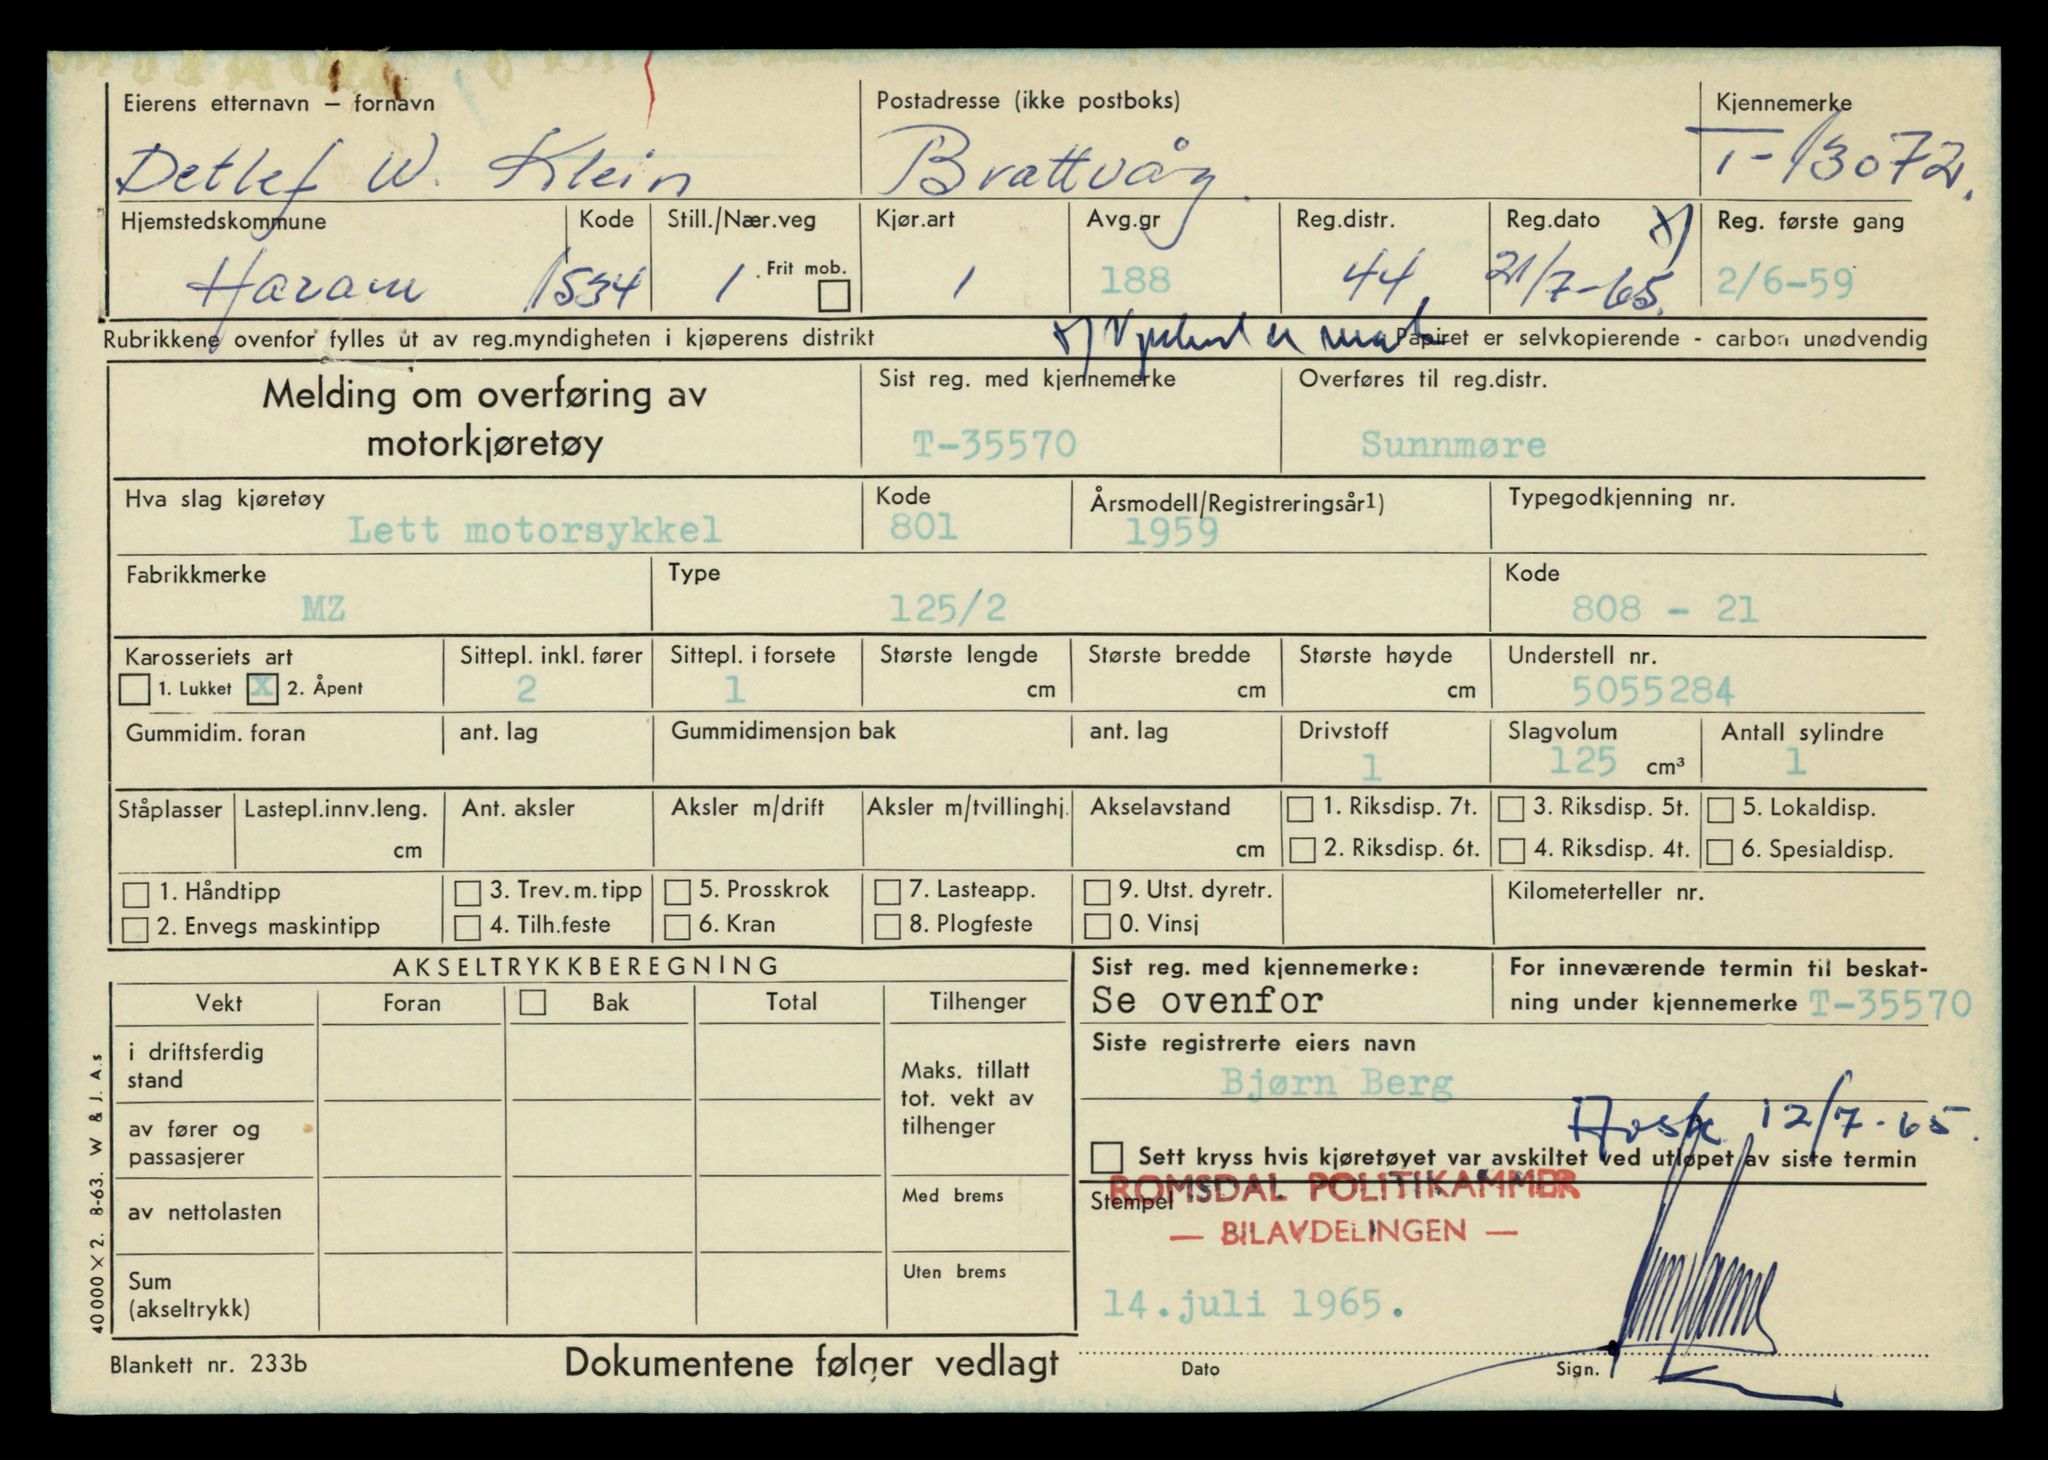 Eierens etternavn – fornavn Postadresse (ikke postboks) Kjennemerke
Detlef W. Klein Brattvåg T-13072.
Hjemstedskommune Kode Still./Nær.veg Kjør.art Avg.gr Reg.distr. Reg.dato x) Reg. første gang
Haram 1534 1 Frit mob. 1 188 44 21/7-65. 2/6-59
Rubrikkene ovenfor fylles ut av reg.myndigheten i kjøperens distrikt x) Papiret er selvkopierende - carbon unødvendig
Melding om overføring av
motorkjøretøy
Sist reg. med kjennemerke Overføres til reg.distr.
T-35570 Sunnmøre
Hva slag kjøretøy Kode Årsmodell/Registreringsår1) Typegodkjenning nr.
Lett motorsykkel 801 1959
Fabrikkmerke Type Kode
MZ 125/2 808 - 21
Karosseriets art Sittepl. inkl. fører Sittepl. i forsete Største lengde Største bredde Største høyde Understell nr.
1. Lukket X 2. Åpent 2 1 cm cm cm 5055284
Gummidim. foran ant. lag Gummidimensjon bak ant. lag Drivstoff Slagvolum Antall sylindre
1 125 cm³ 1
Ståplasser Lastepl.innv.leng. Ant. aksler Aksler m/drift Aksler m/tvillinghj. Akselavstand 1. Riksdisp. 7t. 3. Riksdisp. 5t. 5. Lokaldisp.
cm cm 2. Riksdisp. 6t. 4. Riksdisp. 4t. 6. Spesialdisp.
1. Håndtipp 3. Trev.m.tipp 5. Prosskrok 7. Lasteapp. 9. Utst. dyretr. Kilometerteller nr.
2. Envegs maskintipp 4. Tilh.feste 6. Kran 8. Plogfeste 0. Vinsj
AKSELTRYKKBEREGNING
Vekt Foran Bak Total Tilhenger
i driftsferdig
stand
Maks. tillatt
tot. vekt av
tilhenger
av fører og
passasjerer
av nettolasten Med brems
Sum
(akseltrykk)
Uten brems
Sist reg. med kjennemerke: For inneværende termin til beskat-
Se ovenfor ning under kjennemerke T-35570
Siste registrerte eiers navn
Bjørn Berg
12/7-65.
Sett kryss hvis kjøretøyet var avskiltet ved utløpet av siste termin
Stempel
ROMSDAL POLITIKAMMER
— BILAVDELINGEN —
14.juli 1965.
Dato Sign.
Blankett nr. 233b Dokumentene følger vedlagt
40000 X 2. 8-63. W & J. A.s